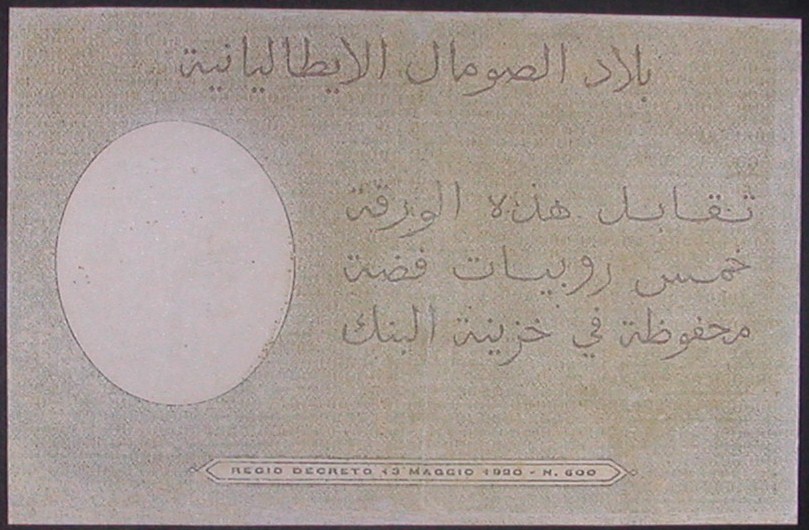 بلاد الصومال الايطاليانية
تقابل هذه الورقة
خمس روبيات فضة
محفوظة في خزينة البنك
REGIO DECRETO 13 MAGGIO 1920 - N. 600